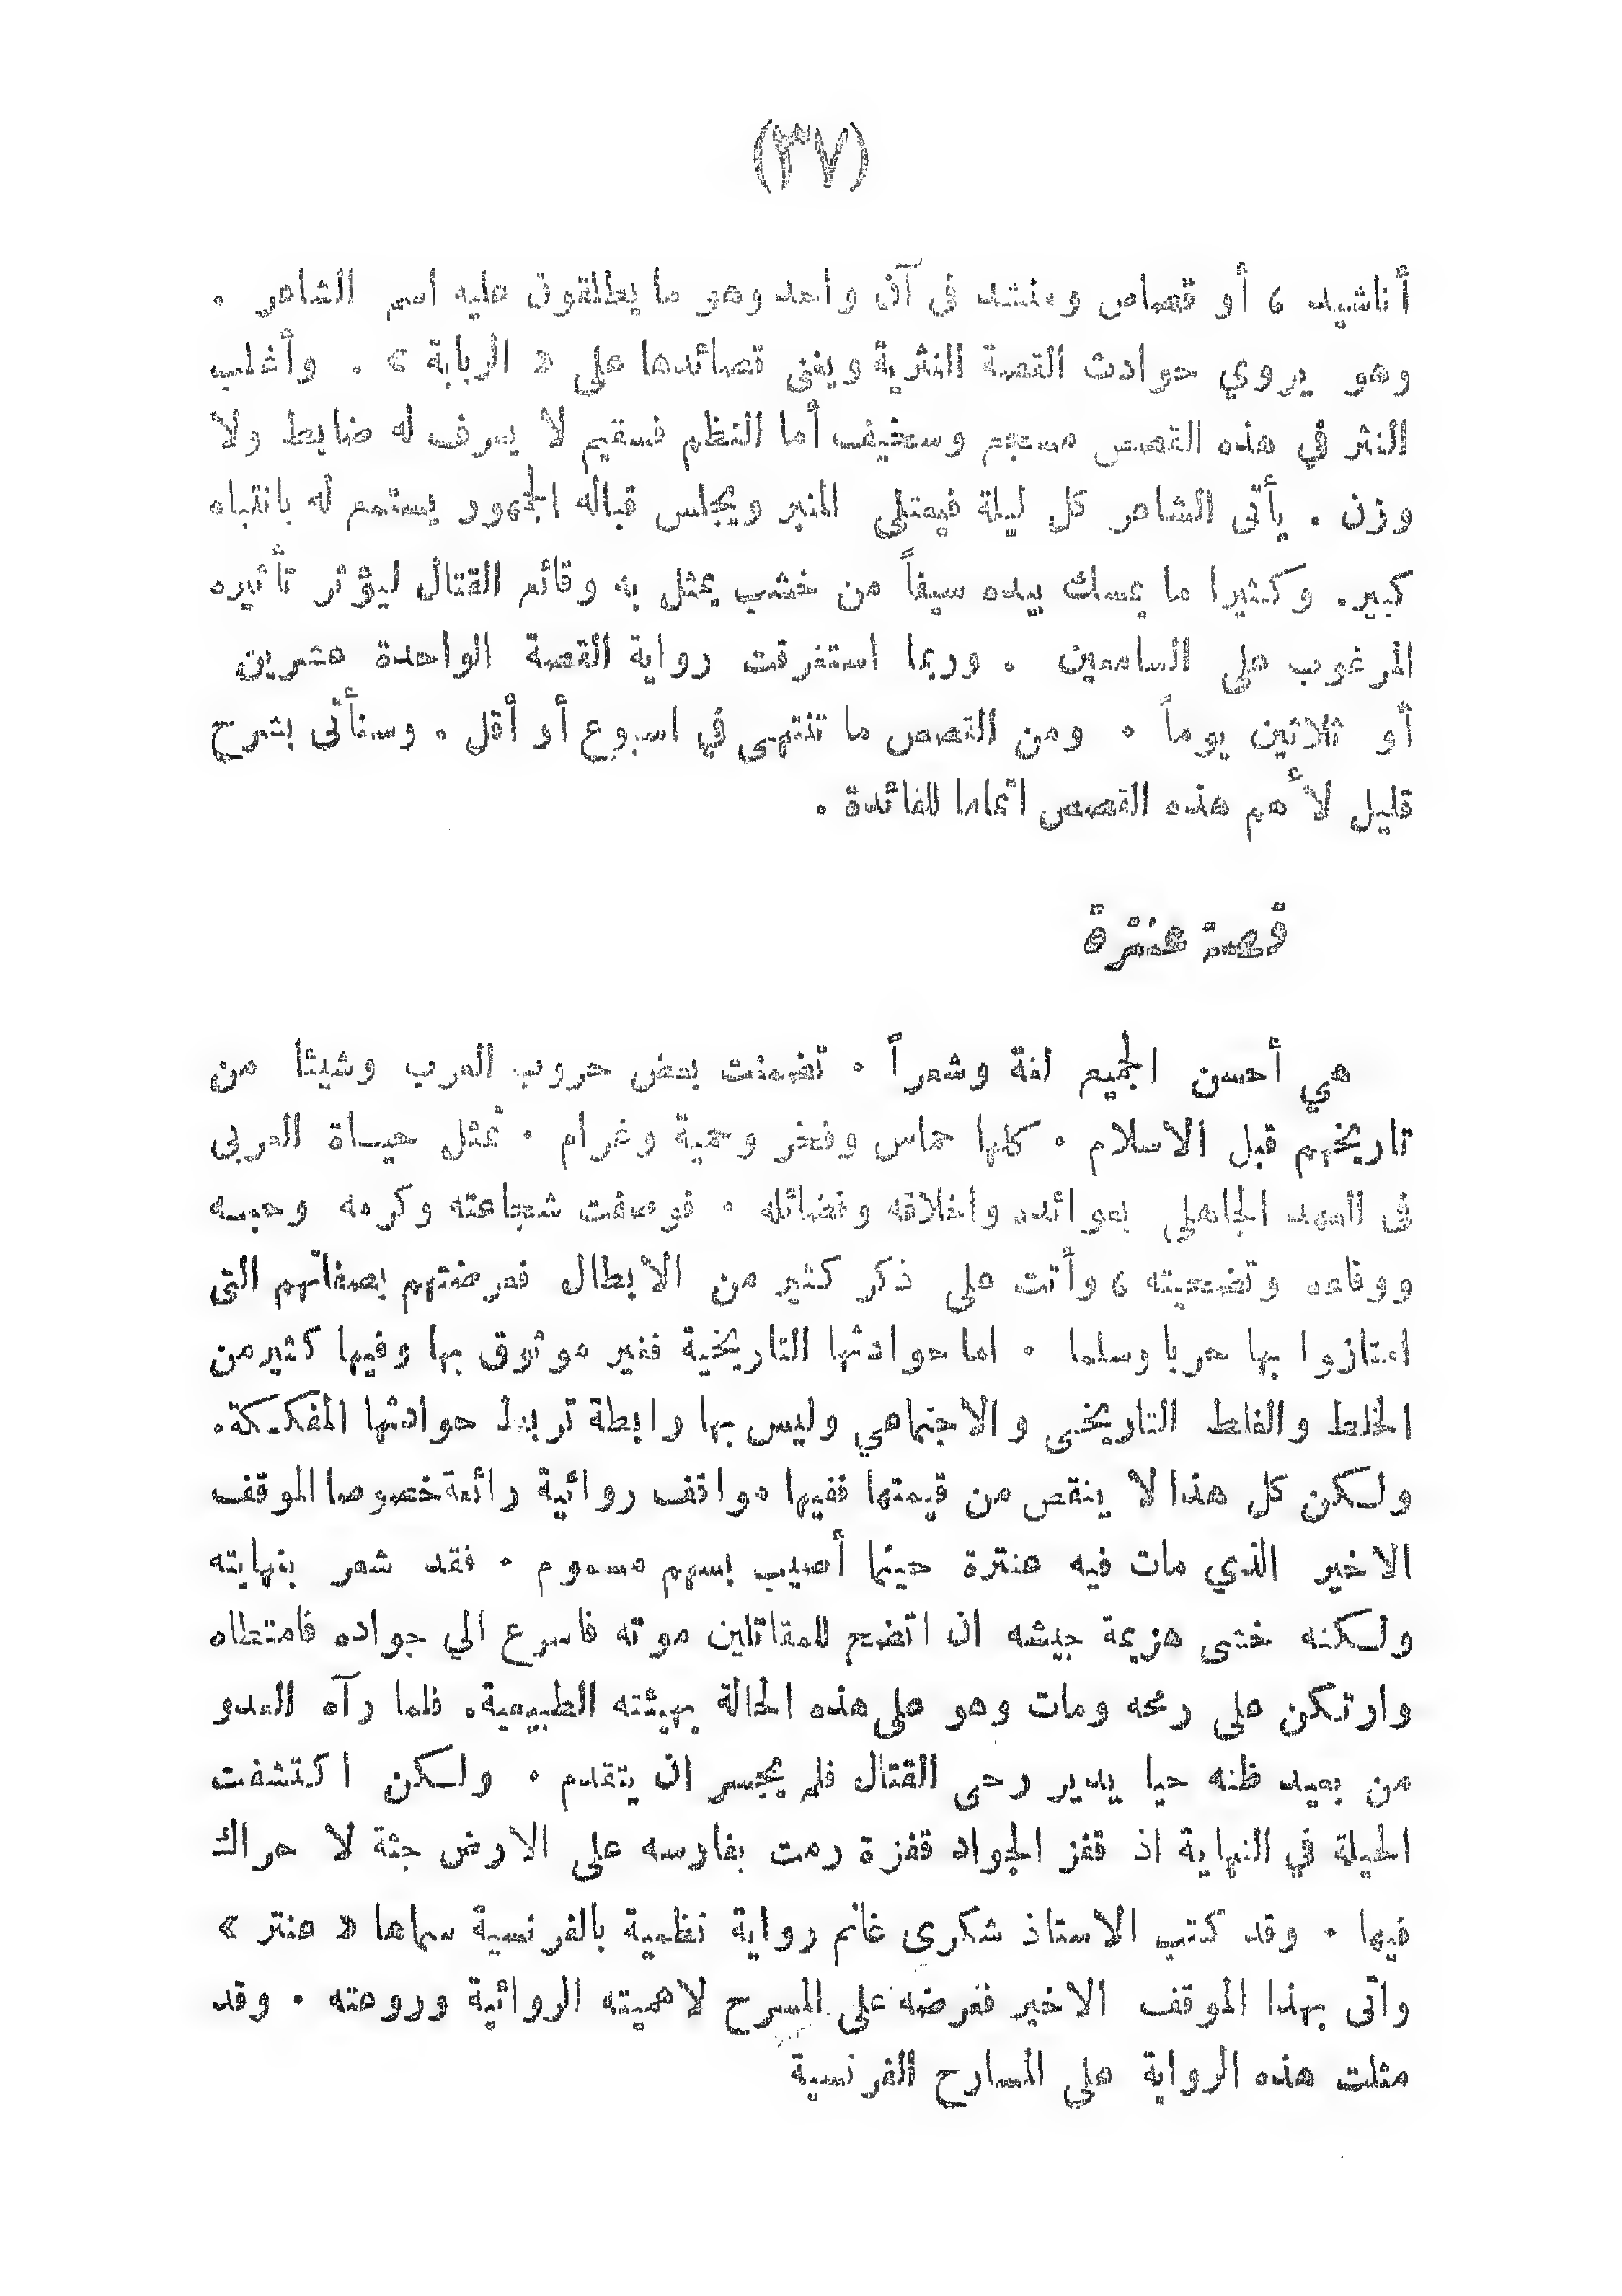 (٣٧)
أناشيد ، أو قصاص ومنشد فى آن واحد وهو ما يطلقون عليه اسم الشاعر .
وهو يروي حوادث القصة النثرية ويغنى قصائدها على « الربابة » . وأغلب
النثر في هذه القصص مسجع وسخيف أما النظم فسقيم لا يعرف له ضابط ولا
وزن . يأتى الشاعر كل ليلة فيعتلى المنبر ويجلس قباله الجمهور يستمع له بانتباه
كبير. وكثيرا ما يمسك بيده سيفاً من خشب يمثل به وقائع القتال ليؤثر تأثيره
المرغوب على السامعين . وربما استغرقت رواية القصة الواحدة عشرين
أو ثلاثين يوماً . ومن القصص ما تنتهى في اسبوع أو أقل . وسنأتى بشرح
قليل لأهم هذه القصص اتماما للفائدة .
قصة عنترة
هي أحسن الجميع لغة وشعراً . تضمنت بعض حروب العرب وشيئا من
تاريخهم قبل الاسلام . كلها حماس وفخر وحمية وغرام . تمثل حياة العربى
فى العهد الجاهلي بعوائده واخلاقه وفضائله . فوصفت شجاعته وكرمه وحبه
ووفاءه وتضحيته ، وأتت على ذكر كثير من الابطال فعرضتهم بصفاتهم التى
امتازوا بها حربا وسلما . اما حوادثها التاريخية فغير موثوق بها وفيها كثير من
الخلط والغلط التاريخى والاجتماعي وليس بها رابطة تربط حوادثها المفككة.
ولكن كل هذا لا ينقص من قيمتها ففيها مواقف روائية رائعة خصوصا الموقف
الاخير الذي مات فيه عنترة حينما أصيب بسهم مسموم . فقد شعر بنهايته
ولكنه خشى هزيمة جيشه ان اتضح للمقاتلين موته فاسرع الي جواده فامتطاه
وارتكن على رمحه ومات وهو على هذه الحالة بهيئته الطبيعية. فلما رآه العدو
من بعيد ظنه حيا يدير رحى القتال فلم يجسر ان يتقدم . ولكن اكتشفت
الحيلة في النهاية اذ قفز الجواد قفزة رمت بفارسه على الارض جثة لا حراك
فيها . وقد كتب الاستاذ شكرى غانم رواية نظمية بالفرنسية سماها « عنتر »
واتى بهذا الموقف الاخير فعرضه على المسرح لاهميته الروائية وروعته . وقد
مثلت هذه الرواية على المسارح الفرنسية